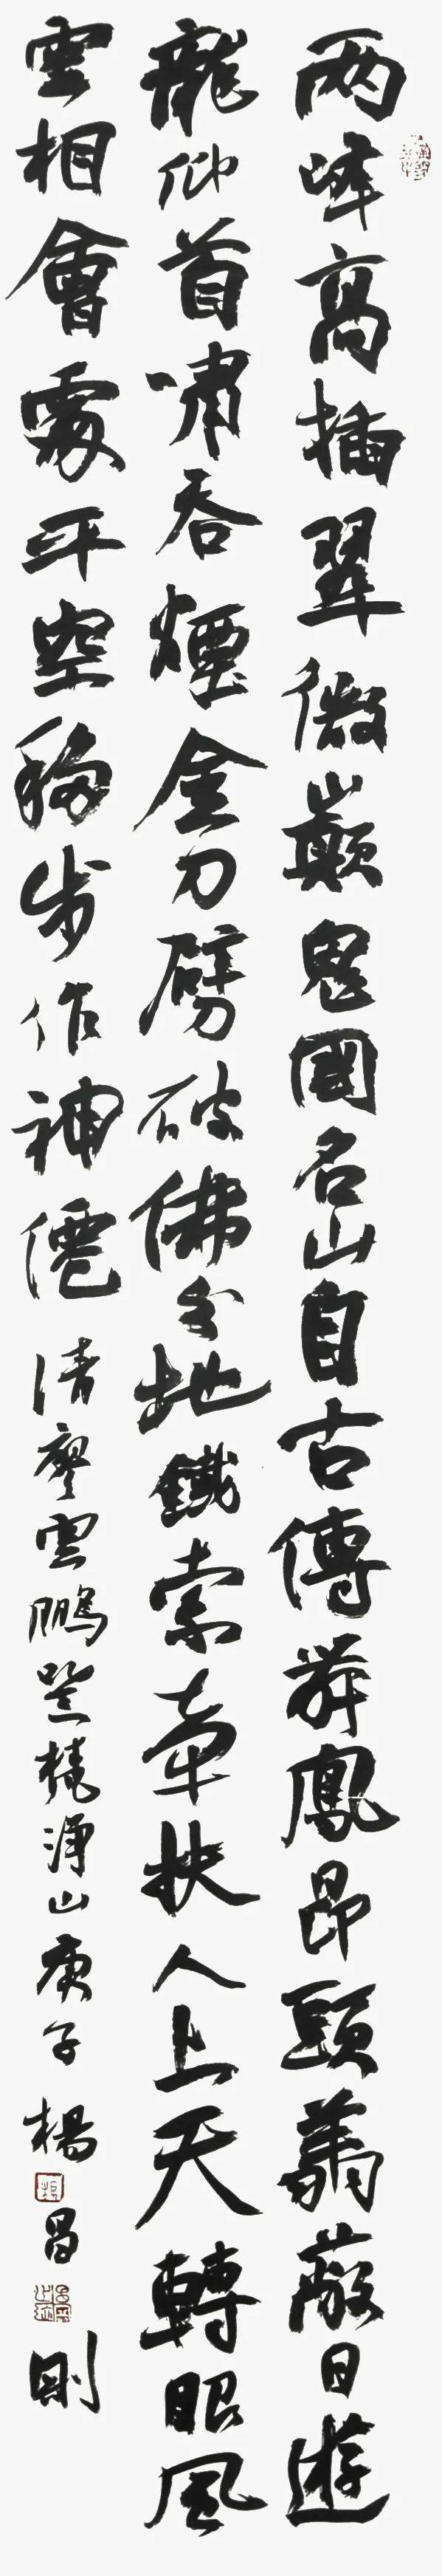 两峰高插翠微巔鬼國名山自古傳舞鳳昂頭翥蔽日遊
龍仰首嘯吞煙金刀劈破佛分地鐵索牽扶人上天轉眼風
雲相會處平空移步作神僊清廖雲鵬登梵淨山庚子楊昌剛